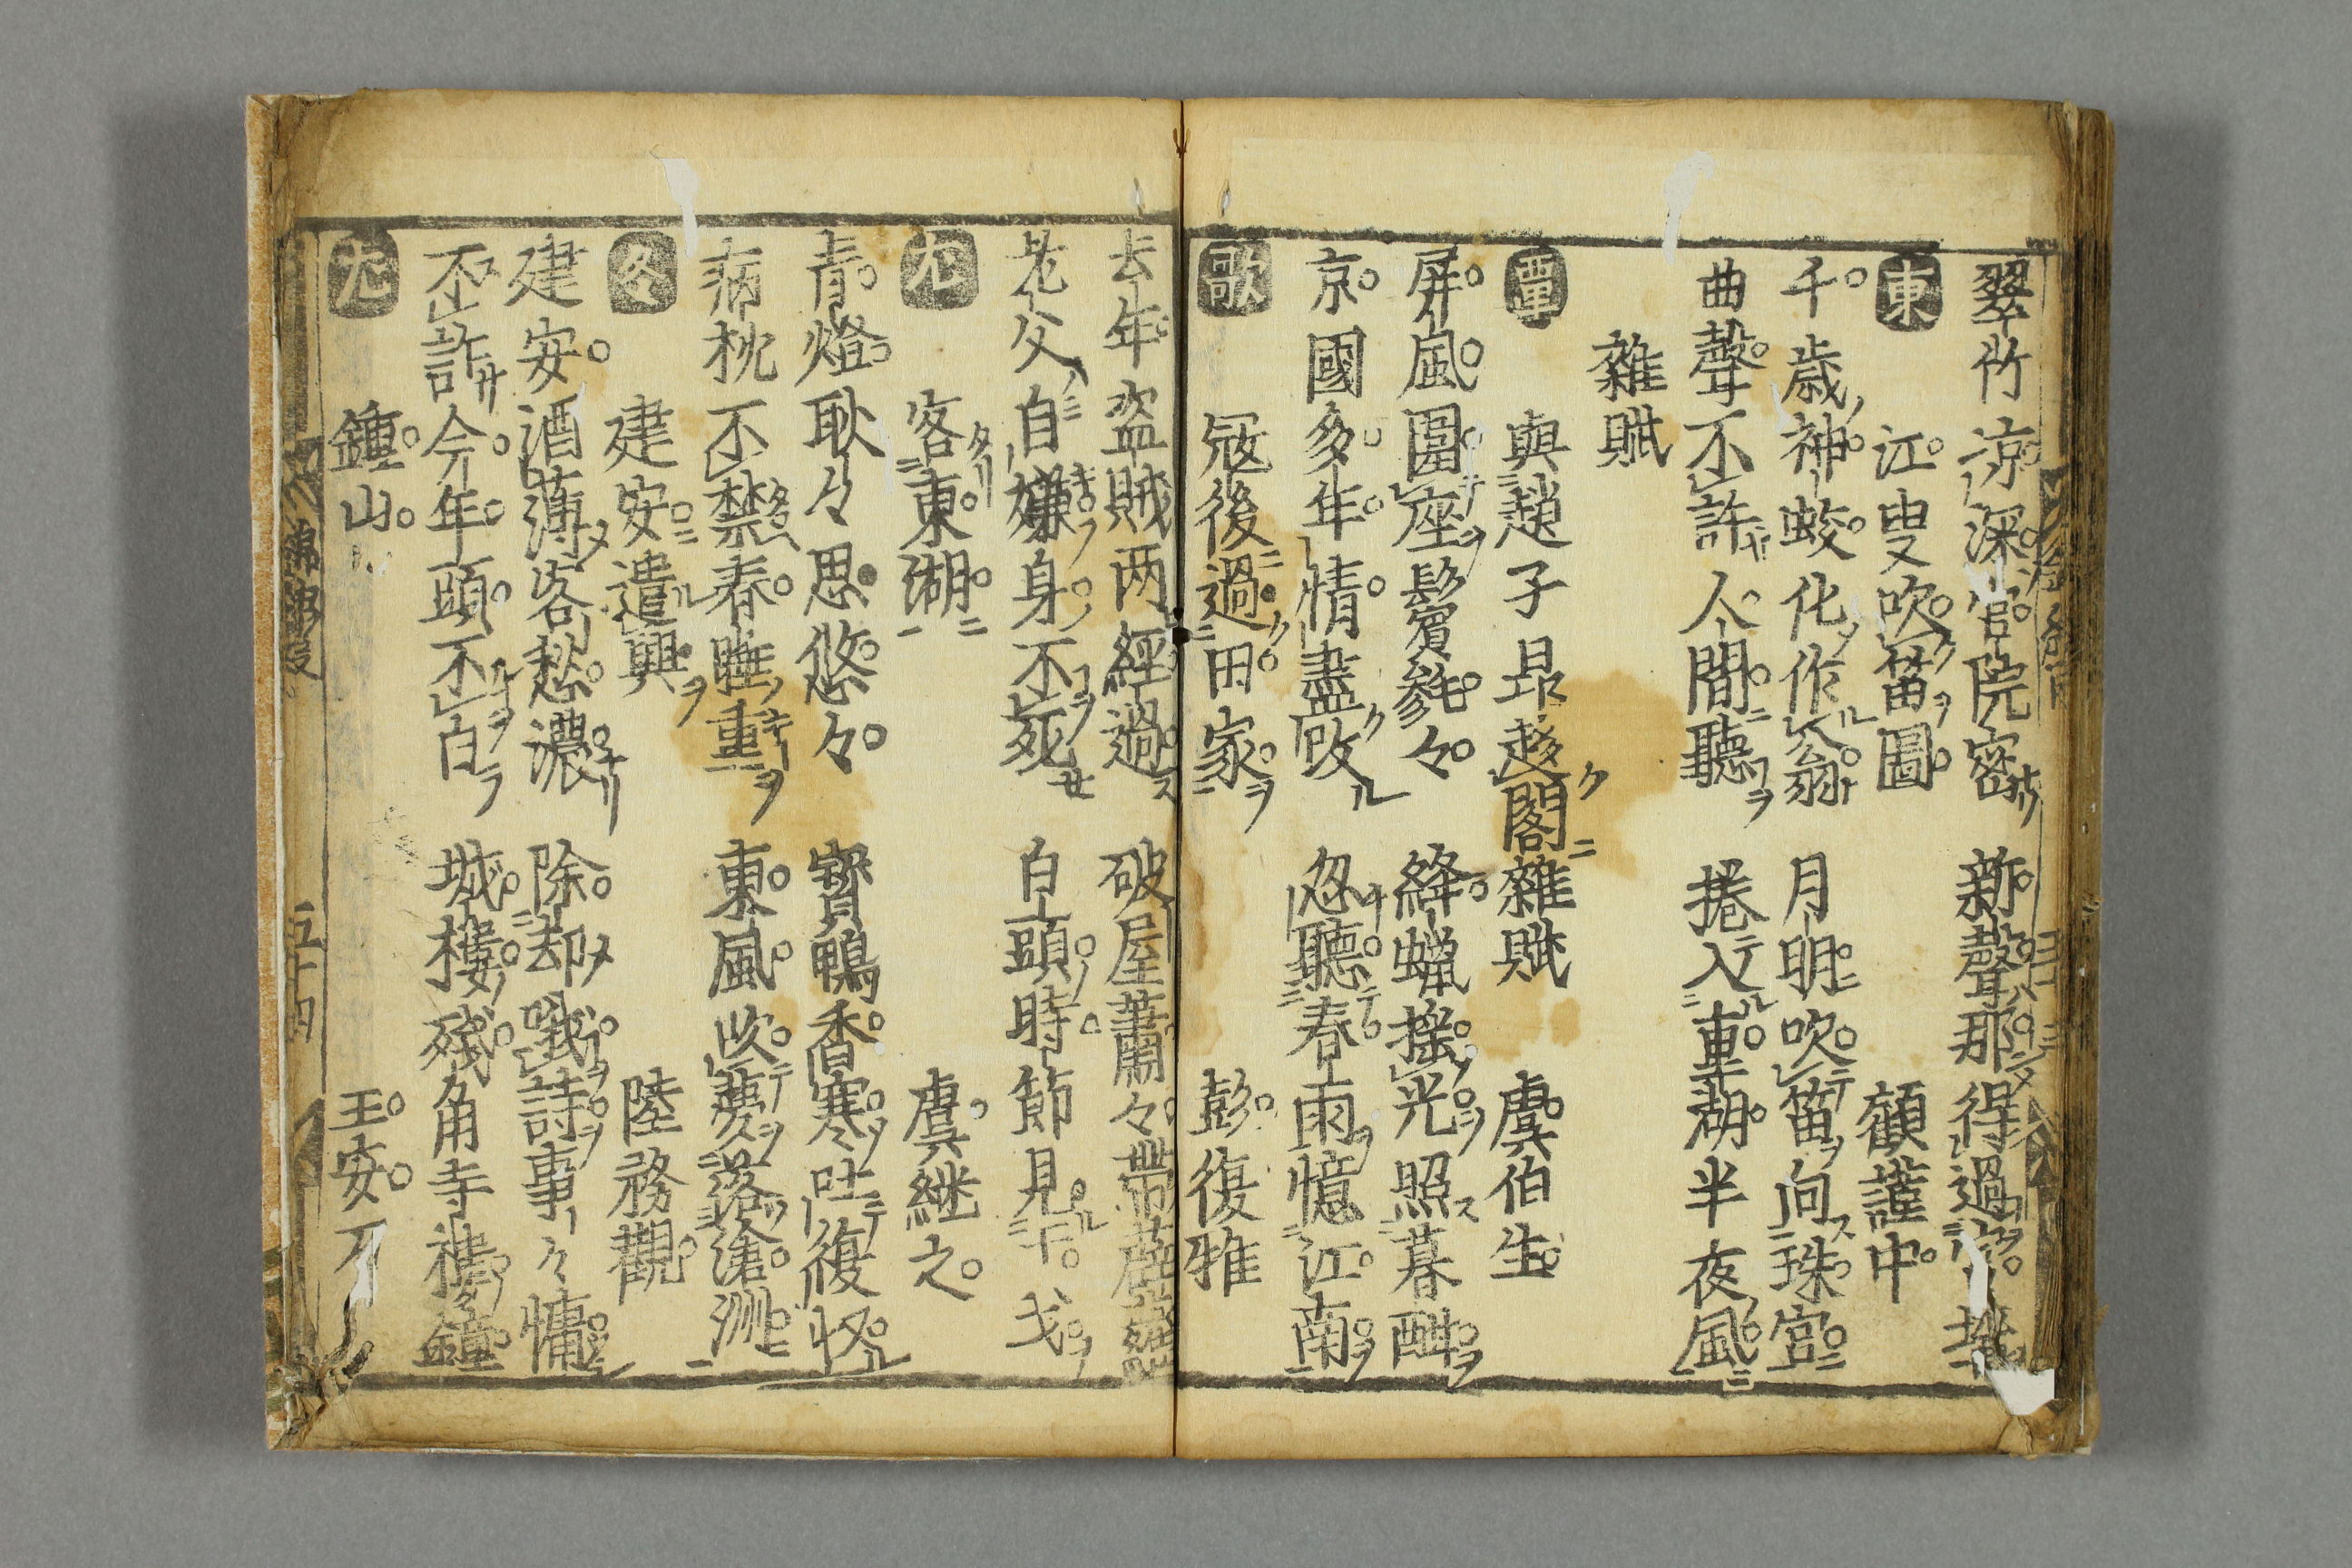 翠竹涼深官院密 新聲那得過
東 江叟吹笛圖 顧謹中
千歳神蛟化作翁 月明吹笛向珠宮
曲聲不許人間聽 捲入重湖半夜風
雜賦
覃 與趙子昻趍閣雜賦 虞伯生
屏風圍座鬢毿々 絳蠟揺光照暮酣
京國多年情盡改 忽聽春雨憶江南
歌 冦後過田家 彭復雅
去年盗賊两經過 破屋蕭々帶薜蘿
老父自嫌身不死 白頭時節見干戈
尤 客東湖 虞継之
青燈耿々思悠々 寳鴨香寒吐復收
病枕不禁春睡重 東風吹夢落滄洲
冬 建安遣興 陸務觀
建安酒薄客愁濃 除却哦詩事々慵
不許今年頭不白 城樓殘角寺樓鐘
元 鍾山 王安
錦繡段
五十四